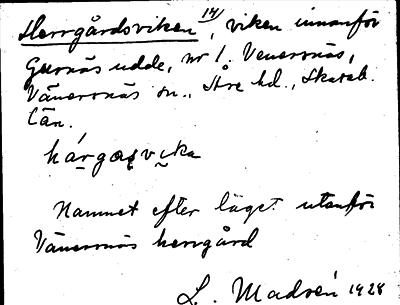 Herrgårdsviken 14), viken innanför
Gurnäs udde, nr 1. Venersnäs,
Vänersnäs sn., Åse hd., Skarab.
län.
hárgasvika
Namnet efter läget utanför
Vänersnäs herrgård
L. Madsén 1928